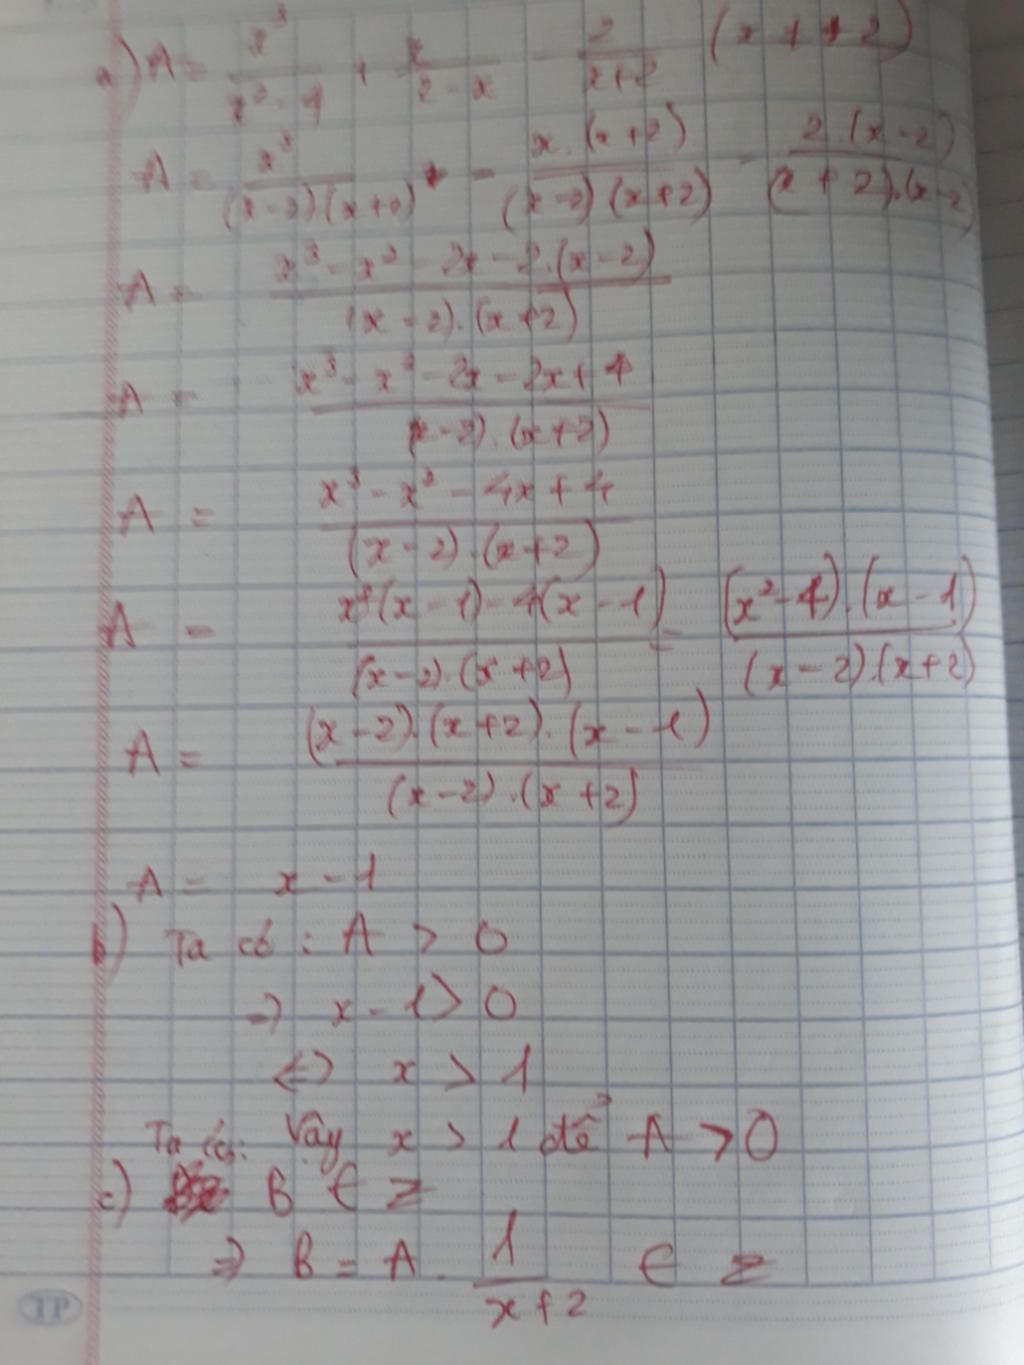 a) A = x³/(x² - 4) + x/(2 - x) - 2/(x + 2) (x ≠ ± 2)
A = x³/((x - 2)(x + 2)) - x.(x + 2)/((x - 2)(x + 2)) - 2.(x - 2)/((x + 2).(x - 2))
A = (x³ - x² - 2x - 2.(x - 2))/((x - 2).(x + 2))
A = (x³ - x² - 2x - 2x + 4)/((x - 2).(x + 2))
A = (x³ - x² - 4x + 4)/((x - 2).(x + 2))
A = (x²(x - 1) - 4(x - 1))/((x - 2).(x + 2)) = ((x² - 4).(x - 1))/((x - 2).(x + 2))
A = ((x - 2).(x + 2).(x - 1))/((x - 2).(x + 2))
A = x - 1
b) Ta có : A > 0
=> x - 1 > 0
<=> x > 1
Vậy x > 1 để A > 0
c) Ta có: B ∈ Z
=> B = A . 1/(x + 2) ∈ Z
TP